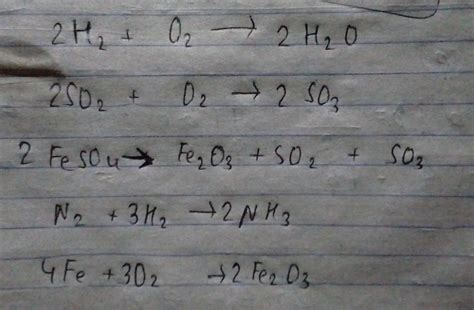 2H₂ + O₂ → 2 H₂O
2SO₂ + O₂ → 2 SO₃
2 FeSO₄ → Fe₂O₃ + SO₂ + SO₃
N₂ + 3H₂ → 2NH₃
4Fe + 3O₂ → 2 Fe₂O₃